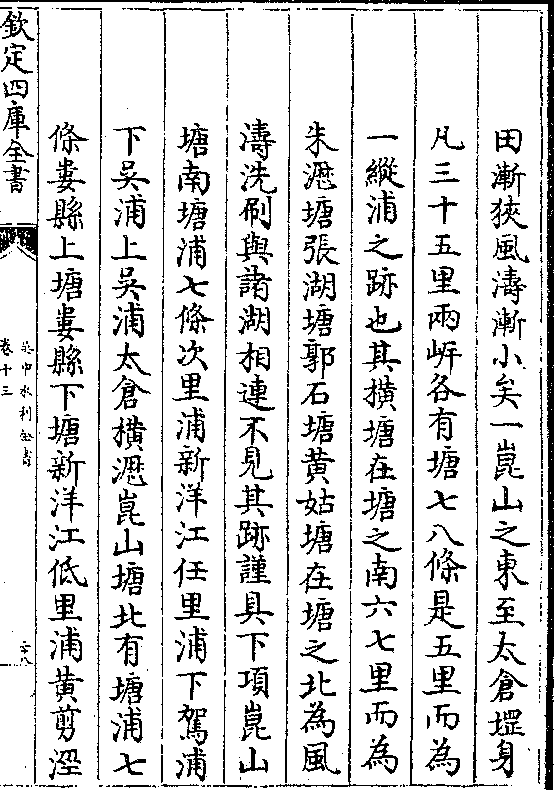 田漸狹風濤漸小矣一崑山之東至太倉堽身
凡三十五里兩岍各有塘七八條是五里而為
一縱浦之跡也其橫塘在塘之南六七里而為
朱瀝塘張湖塘郭石塘黄姑塘在塘之北為風
濤洗刷與諸湖相連不見其跡謹具下項崑山
塘南塘浦七條次里浦新洋江任里浦下駕浦
下吳浦上吳浦太倉橫瀝崑山塘北有塘浦七
條婁縣上塘婁縣下塘新洋江低里浦黄剪涇
欽定四庫全書
吳中水利全書
卷十三